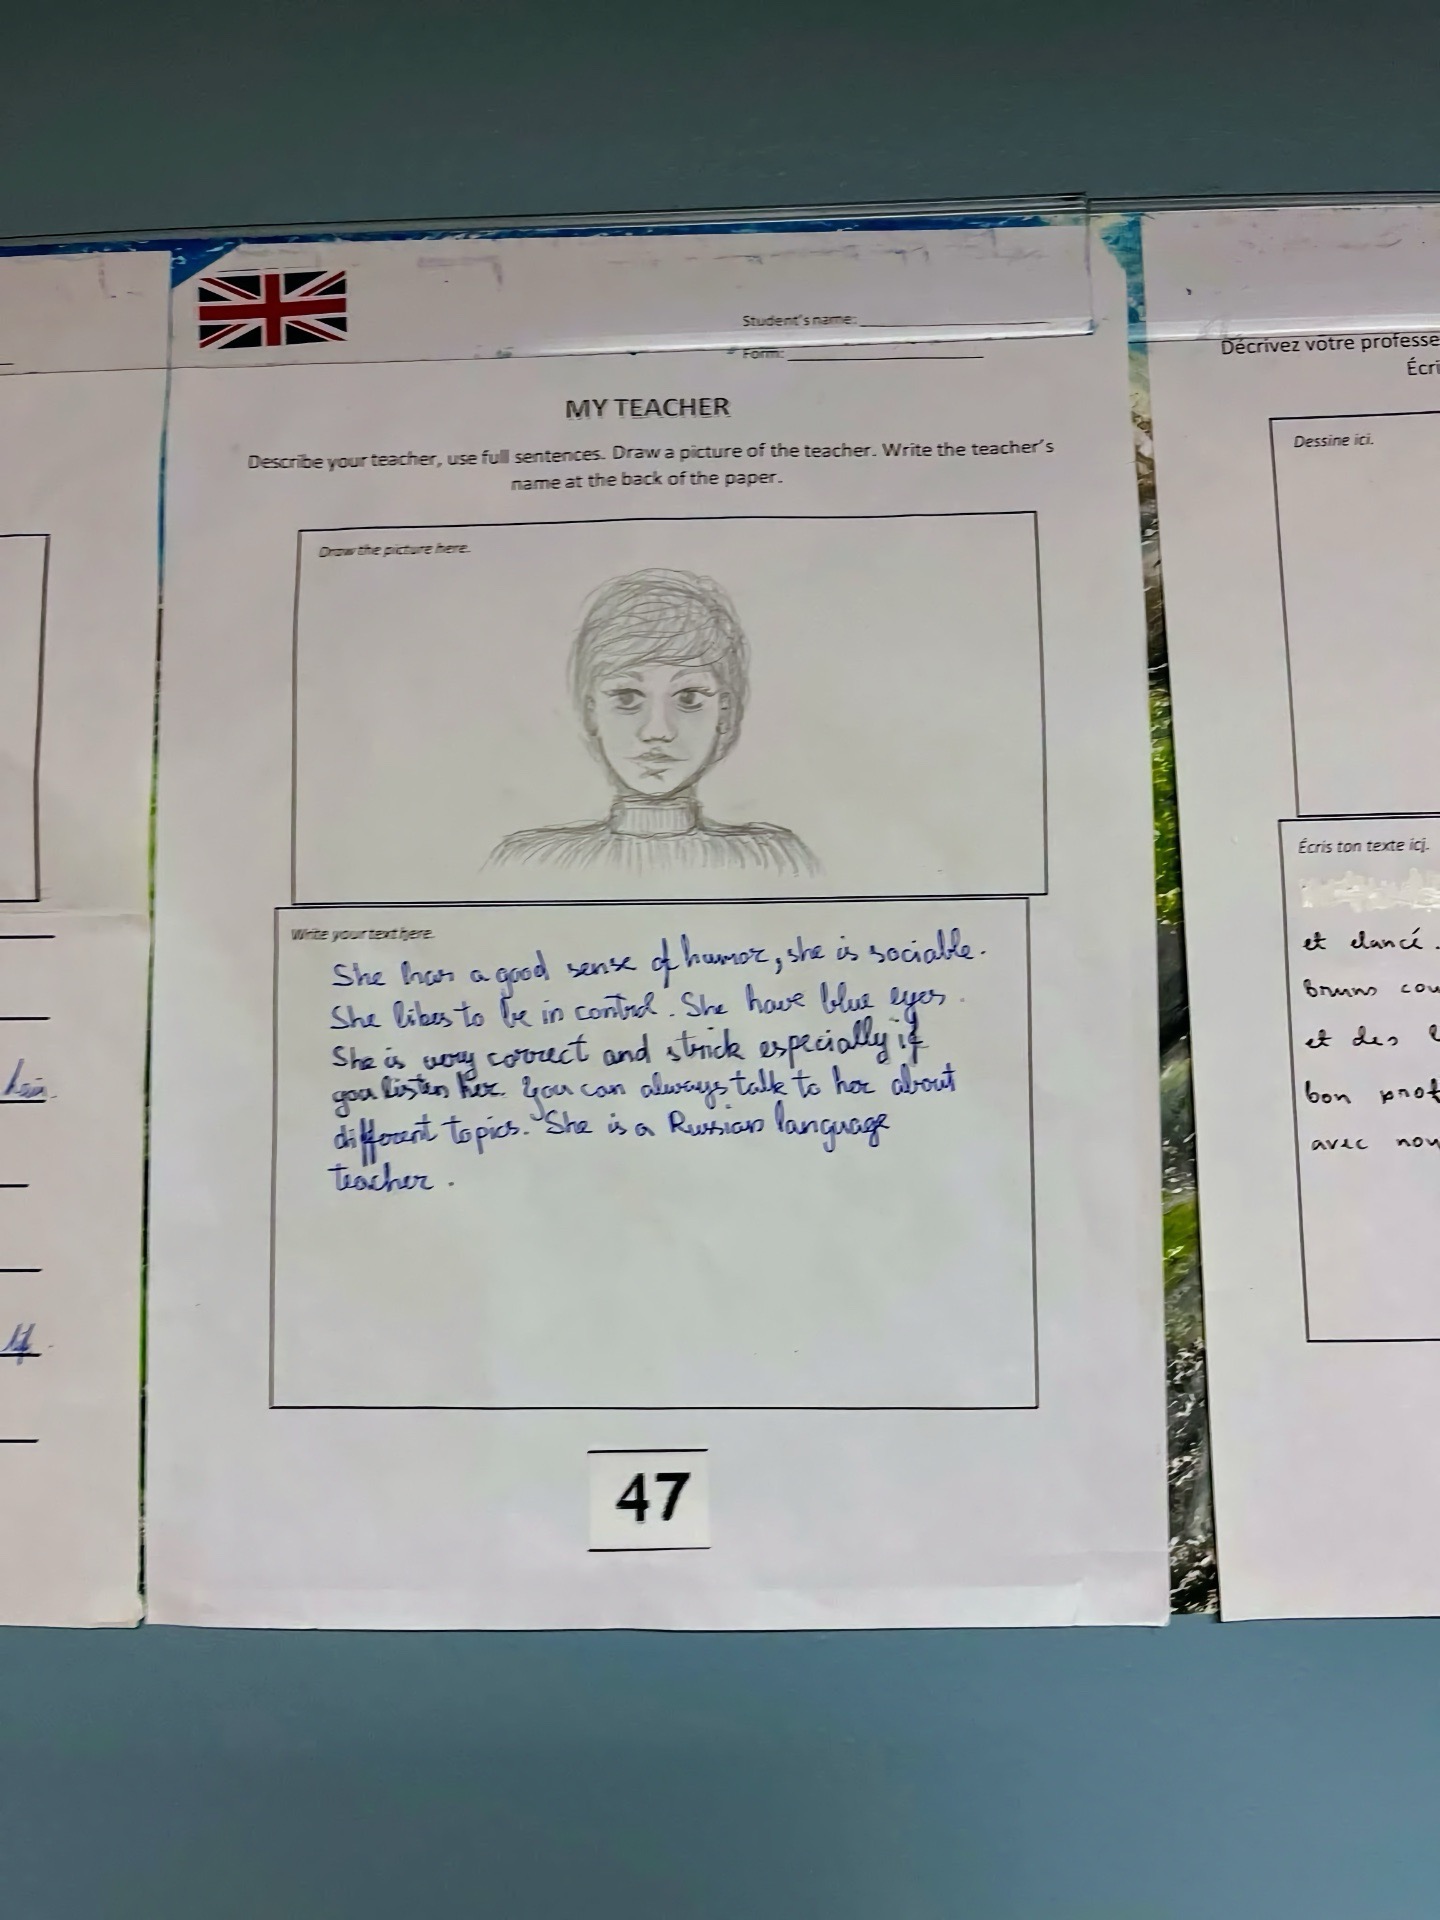 Student's name:
Form:
MY TEACHER
Describe your teacher, use full sentences. Draw a picture of the teacher. Write the teacher's
name at the back of the paper.
Draw the picture here.
Write your text here.
She has a good sense of humor, she is sociable.
She likes to be in control. She have blue eyes.
She is very correct and strick especially if
you listen her. You can always talk to her about
different topics. She is a Russian language
teacher.
47
Décrivez votre professe
Écri
Dessine ici.
Écris ton texte ici.
et elancé.
bruns cou
et des l
bon prof
avec nou